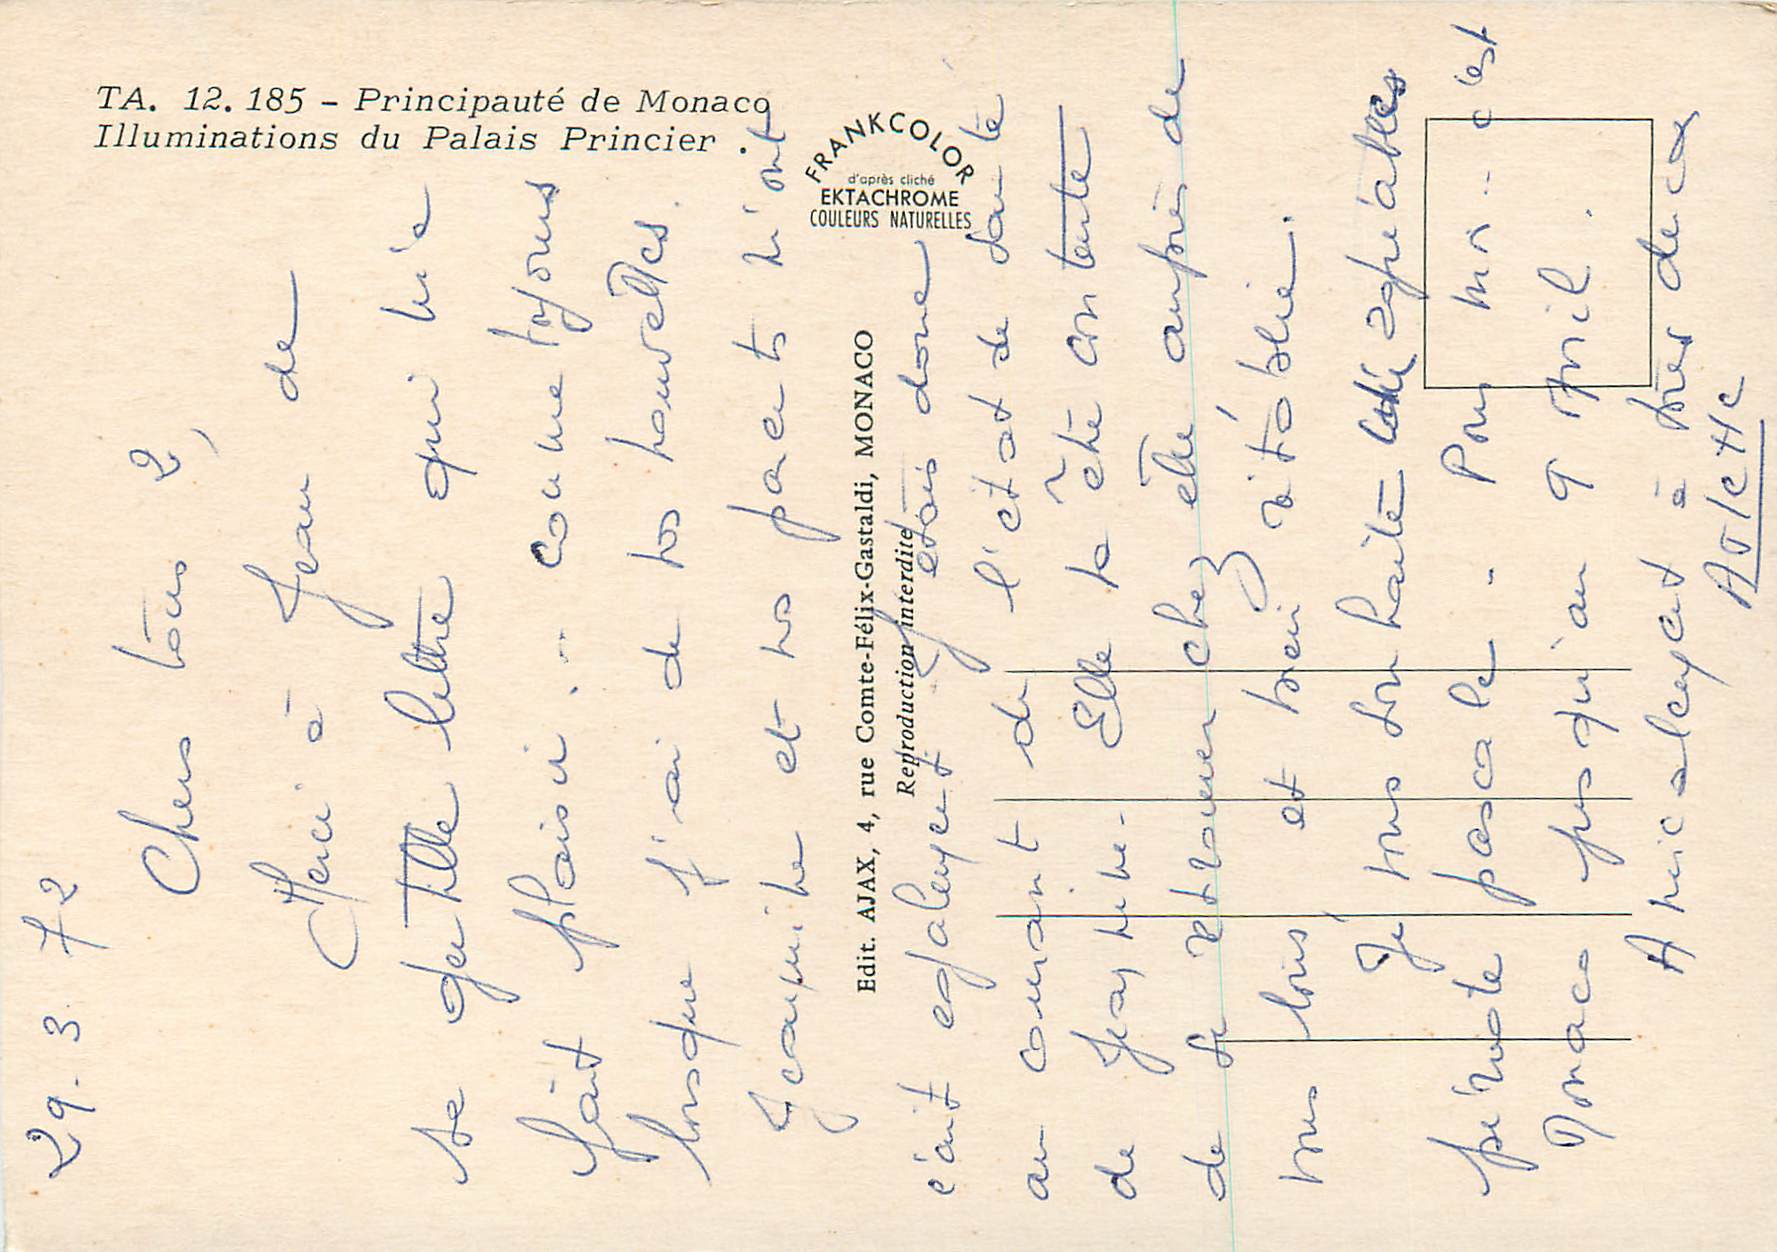 TA. 12.185 - Principauté de Monaco
Illuminations du Palais Princier .
FRANKCOLOR
d'après cliché
EKTACHROME
COULEURS NATURELLES
Edit. AJAX, 4, rue Comte-Félix-Gastaldi, MONACO
Reproduction interdite
29.3.72
Chers tous 2,
Merci à Jean de
sa gentille lettre qui m'a
fait plaisir .. comme toujours
lorsque j'ai de vos nouvelles.
Jacqueline et vos parents m'ont
écrit également. J'étais donc
au courant de l'état de santé
de Jeannine. Elle va être contente
de se retrouver chez elle auprès de
vous tous et bien rétablie.
Je vous souhaite agréables
période pascale. Pour moi .. c'est
Monaco jusqu'au 9 Avril.
Amicalement à vous deux
Arlette